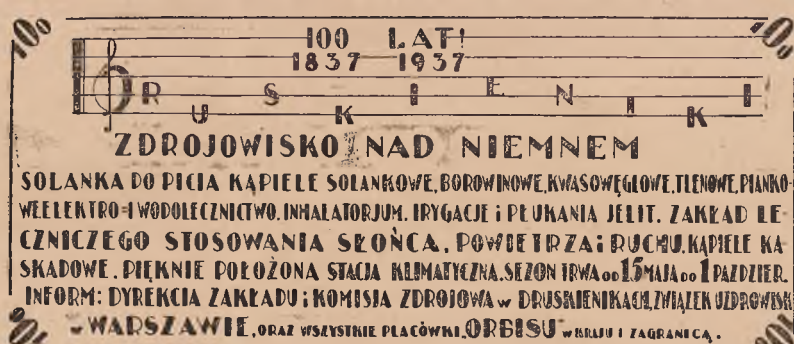 100 100
100 LAT!
1837 1937
DRUSKIENIKI
ZDROJOWISKO NAD NIEMNEM
SOLANKA DO PICIA KĄPIELE SOLANKOWE, BOROWINOWE, KWASOWĘGLOWE, TLENOWE, PIANKO-
WE ELEKTRO-I WODOLECZNICTWO. INHALATORJUM. IRYGACJE i PŁUKANIA JELIT. ZAKŁAD LE-
CZNICZEGO STOSOWANIA SŁOŃCA, POWIETRZA i RUCHU. KĄPIELE KA-
SKADOWE. PIĘKNIE POŁOŻONA STACJA KLIMATYCZNA. SEZON TRWA OD 15 MAJA DO 1 PAŹDZIER.
INFORM: DYREKCIA ZAKŁADU i KOMISJA ZDROJOWA w DRUSKIENIKACH, ZWIĄZEK UZDROWISK
w WARSZAWIE, ORAZ WSZYSTKIE PLACÓWKI "ORBISU" w KRAJU I ZAGRANICĄ.
100 100